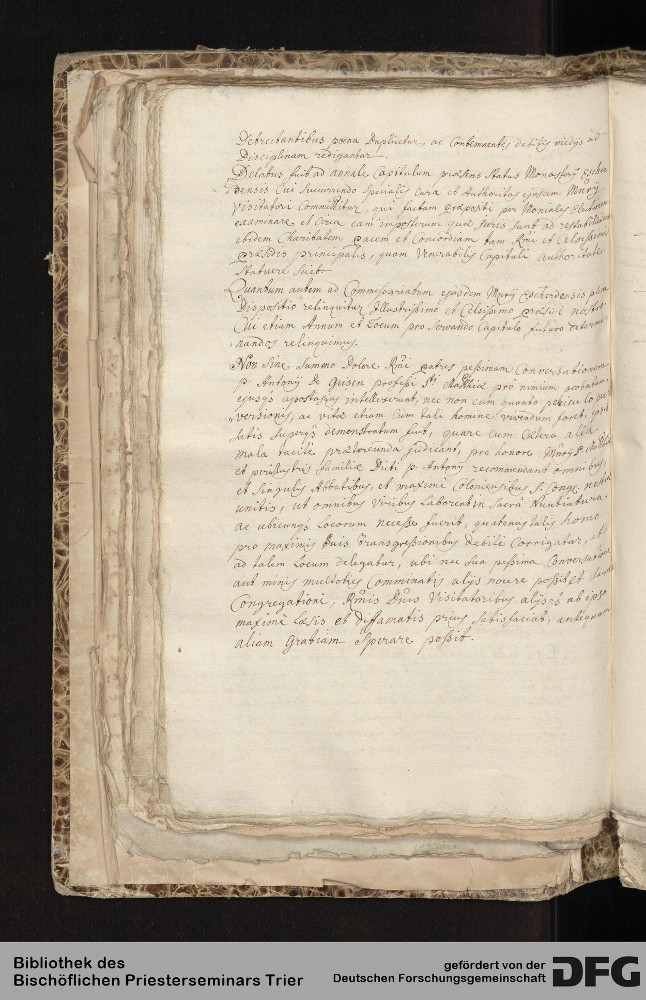 Detrectantibus poena Duplicetur, ac Contemnentes debitis medijs ad
Disciplinam redigantur.
Delatus fuit ad annale Capitulum præsens Status Monasterij
densis Cui Succurrendo Specialis cura et Authoritas ejusdem Mnrÿ
Visitatori Committitur, qui factam præpositi per Moniales Electionem
examinare et Circa eam impositurum quæ Juris sunt ad restabiliendam
ibidem Charitatem pacem et Concordiam tam Rmi et Celsissimi
Præsidis principalis, quam Venerabilis Capituli Authoritate
Statuere sciet.
Quantum autem ad Commissariatum ejusdem Mnrÿ plena
Dispositio relinquitur Illustrissimo et Celsissimo præsidi nostro
Cui etiam Annum et Locum pro Servando Capitulo futuro determi-
nandos relinquimus.
Non Sine Summo Dolore Rmi patres pessimam Conversationem
p. Antonij de Gusen professi Sti Mathiæ pro nimium probatam
ejusqs apostasias intellexerunt, nec non cum quanto periculo per-
versionis, ac vitæ etiam Cum tali homine vivendum foret,
Satis Superqs demonstratum fuit, quare cum Cætera alia
mala facile prætereunda judicent, pro honore Mnrÿ S.
et perillustris familiæ Dicti p. Antonij recommendant omnibus
et Singulis Abbatibus, et maximè Coloniensibus S. Congr.
unitis, ut omnibus Viribus Laborent in Sacrâ Nuntiaturâ
ac ubicunqs Locorum necesse fuerit, quatenus talis homo
pro maximis Suis transgressionibus debitè Corrigatur, et
ad talem Locum delegatur, ubi nec sua pessima Conversatione
aut minis multoties Comminatis alijs nocere possit et Sacræ
Congregationi, Rmis Dnis Visitatoribus alijsqs ab ipso
maximè Læsis et diffamatis prius Satisfaciat, antequam
aliam Gratiam Sperare possit.
Bibliothek des
Bischöflichen Priesterseminars Trier
gefördert von der
Deutschen Forschungsgemeinschaft
DFG